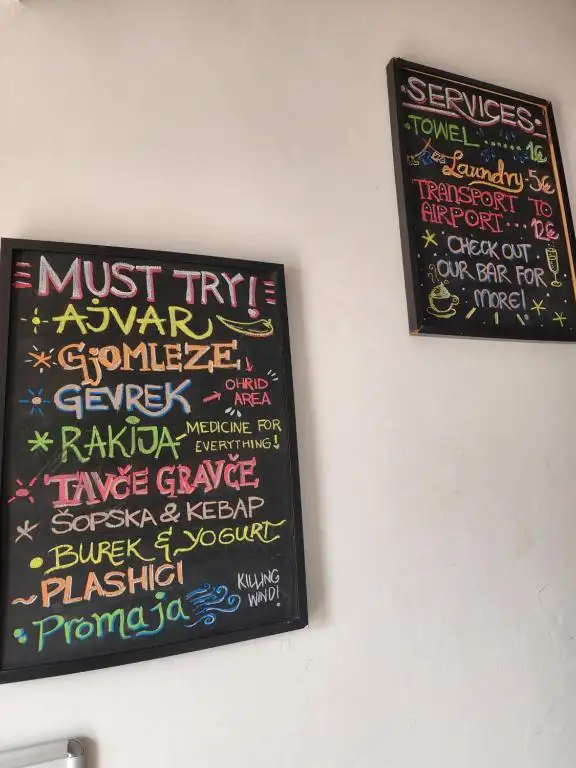 MUST TRY!
AJVAR
GJOMLEZE
GEVREK
OHRID
AREA
RAKIJA
MEDICINE FOR
EVERYTHING!
TAVČE GRAVČE
ŠOPSKA & KEBAP
BUREK & YOGURT
PLASHICI
Promaja
KILLING
WIND!
SERVICES
TOWEL ...... 1€
Laundry - 5€
TRANSPORT TO
AIRPORT ... 12€
CHECK OUT
OUR BAR FOR
MORE!